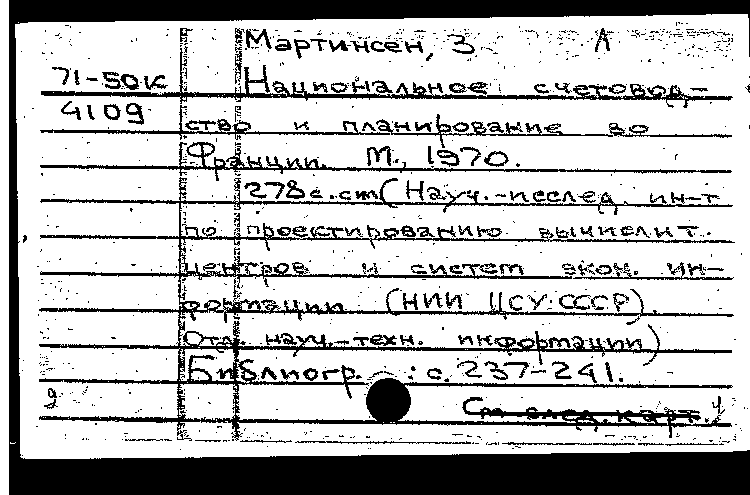 Мартинсен, З А
71-50к Национальное счетовод-
4109
ство и планирование во
Франции. М., 1970.
278с. ст (Науч.-исслед. ин-т
по проектированию вычислит.
центров и систем экон. ин-
формации (НИИ ЦСУ СССР).
Отд. науч.-техн. информации)
Библиогр. : с. 237-241.
См след. карт.